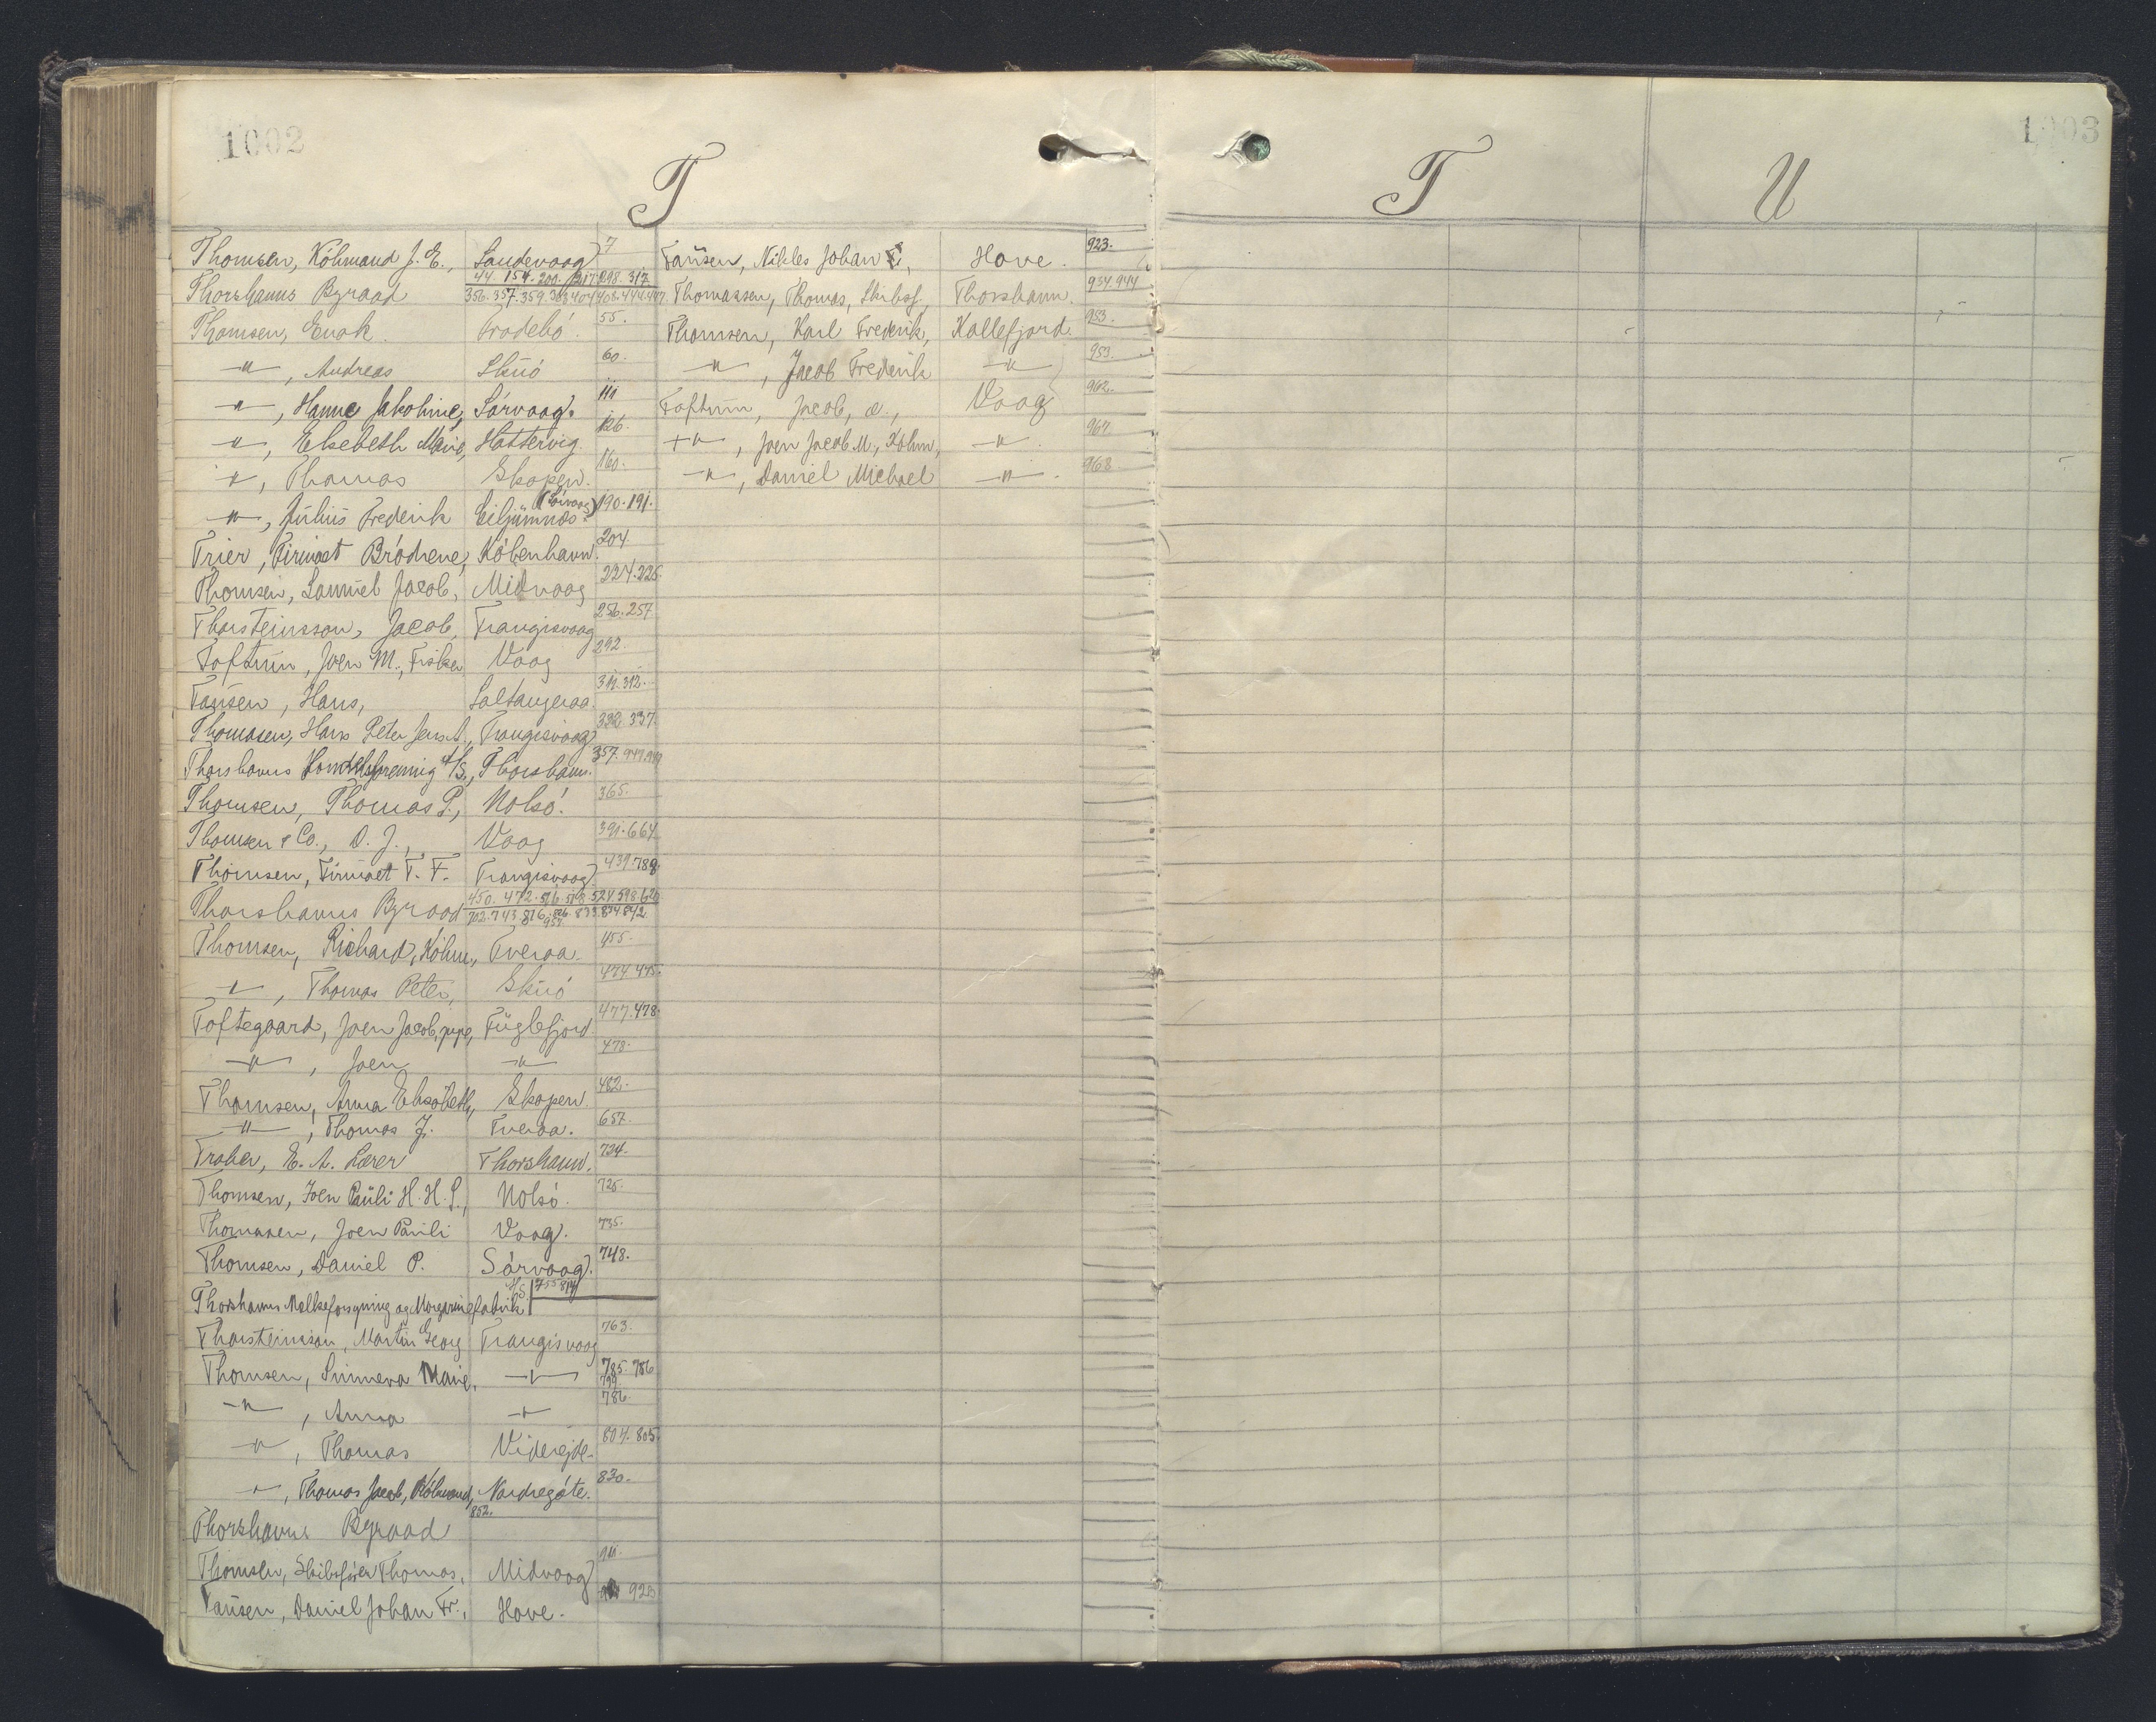 1002
T
Thomsen, Köhmand J. E., Sandevaag 7
Thorshavns Byraad 44. 154. 200. 217. 298. 317.
356. 357. 359. 363. 404. 408. 444. 447.
Thomsen, Enok. Frodebó. 55.
—"—, Andreas Skúó 60.
—"—, Hanne Jakobine, Sórvaag. 111
—"—, Elsebeth Marie, Hattervig. 126.
—"—, Thomas Skopen. 160.
—"—, Julius Frederik Eiljümnæs (Sórvaag) 190. 191.
Trier, Firmaet Brödrene, Kóbenhavn. 204.
Thomsen, Samuel Jacob, Midvaag 224. 225.
Thorsteinsson, Jacob, Trangisvaag 256. 257
Toftum, Joen M., Fisker Vaag 292.
Tausen, Hans, Saltangeraa. 311. 312.
Thomasen, Hans Peter Jens A., Trangisvaag 332. 337.
Thorshavns Handelsforening A/S., Thorshavn. 357. 949.
Thomsen, Thomas P., Nolsó. 365.
Thomsen & Co., D. J., Vaag 391. 664
Thomsen, Firmaet T. F. Trangisvaag 439. 789.
Thorshavns Byraad 450. 472. 516. 518. 524. 598. 620
702. 743. 816. 826. 833. 834. 842.
957.
Thomsen, Richard, Köhm., Tveraa. 455.
—"—, Thomas Peter, Skúó 474. 475.
Toftegaard, Joen Jacob, Fúglefjord. 477. 478.
—"—, Joen —"— 478.
Thomsen, Anna Elisabeth, Skopen. 482.
—"—, Thomas J. Tveraa. 657.
Traber, E. A. Lærer Thorshavn. 724.
Thomsen, Joen Paúli H. H. P., Nolsó. 725.
Thomasen, Joen Paúli Vaag. 735.
Thomsen, Daniel P. Sórvaag. 748.
Thorshavns Mælkeforsyning og Margarinefabrik A/S. 755 814
Thorsteinsson, Martin Georg Trangisvaag 763.
Thomsen, Sunneva Marie, —"— 785. 786
799.
—"—, Anna —"— 786.
—"—, Thomas Viderejde. 804. 805.
—"—, Thomas Jacob, Köhmand, Nordregóte. 830.
Thorshavns Byraad 852.
Thomsen, Skibsfører Thomas, Midvaag
Tausen, Daniel Johan Fr., Hove. 923
Tausen, Nikles Johan, Hove. 923.
Thomassen, Thomas, Skibsf., Thorshavn. 934. 944
Thomsen, Karl Frederik, Kollefjord. 953.
—"—, Jacob Frederik —"— 953.
Toftum, Jacob, Vaag 962.
—"—, Joen Jacob M., Köhm, —"—. 967
—"—, Daniel Michael —"—. 968.
1003
T
U